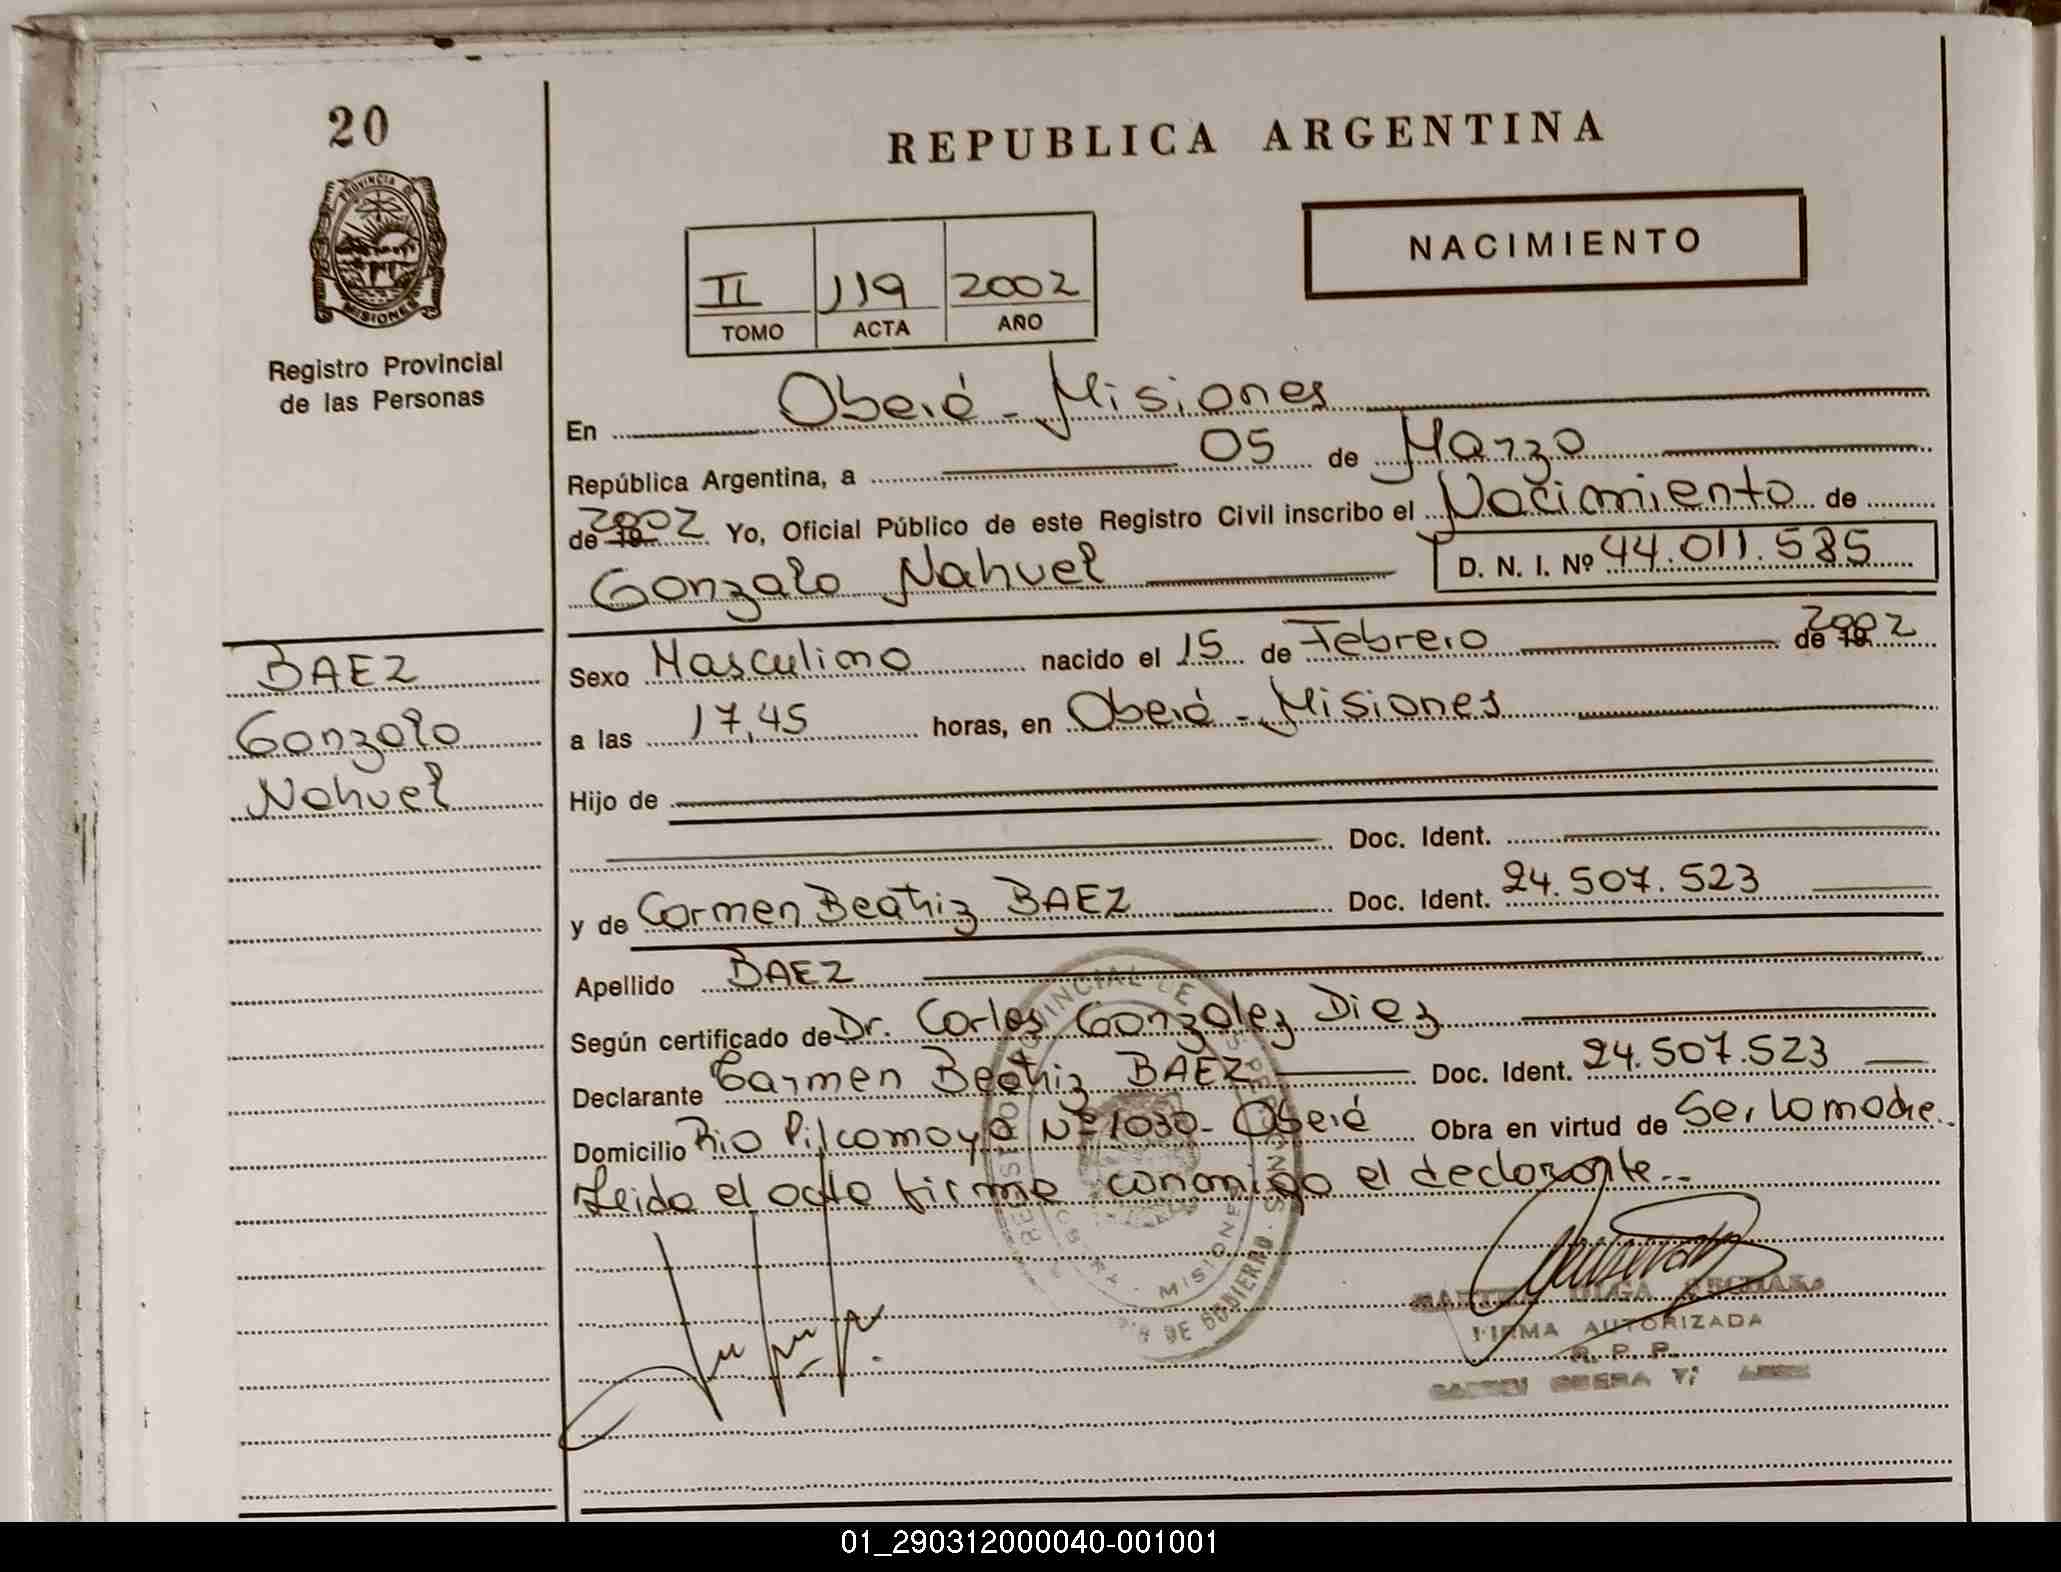 20
REPUBLICA ARGENTINA
PROVINCIA D
MISIONES
Registro Provincial
de las Personas
NACIMIENTO
II 119 2002
TOMO ACTA AÑO
En Oberá - Misiones
República Argentina, a 05 de Marzo
de 19 2002 Yo, Oficial Público de este Registro Civil inscribo el Nacimiento de
Gonzalo Nahuel D. N. I. Nº 44.011.585
BAEZ
Gonzalo
Nahuel
Sexo Masculino nacido el 15 de Febrero de 19 2002
a las 17,45 horas, en Oberá - Misiones
Hijo de
Doc. Ident.
y de Carmen Beatriz BAEZ Doc. Ident. 24.507.523
Apellido BAEZ
Según certificado de Dr. Carlos Gonzalez Diez
Declarante Carmen Beatriz BAEZ Doc. Ident. 24.507.523
Domicilio Rio Pilcomayo Nº 1030 - Oberá Obra en virtud de Ser la madre.
Leida el acta firma conmigo el declarante..
MISIONES
DE GOBIERNO
OLGA
FIRMA AUTORIZADA
R. P. P.
OBERA
01_290312000040-001001